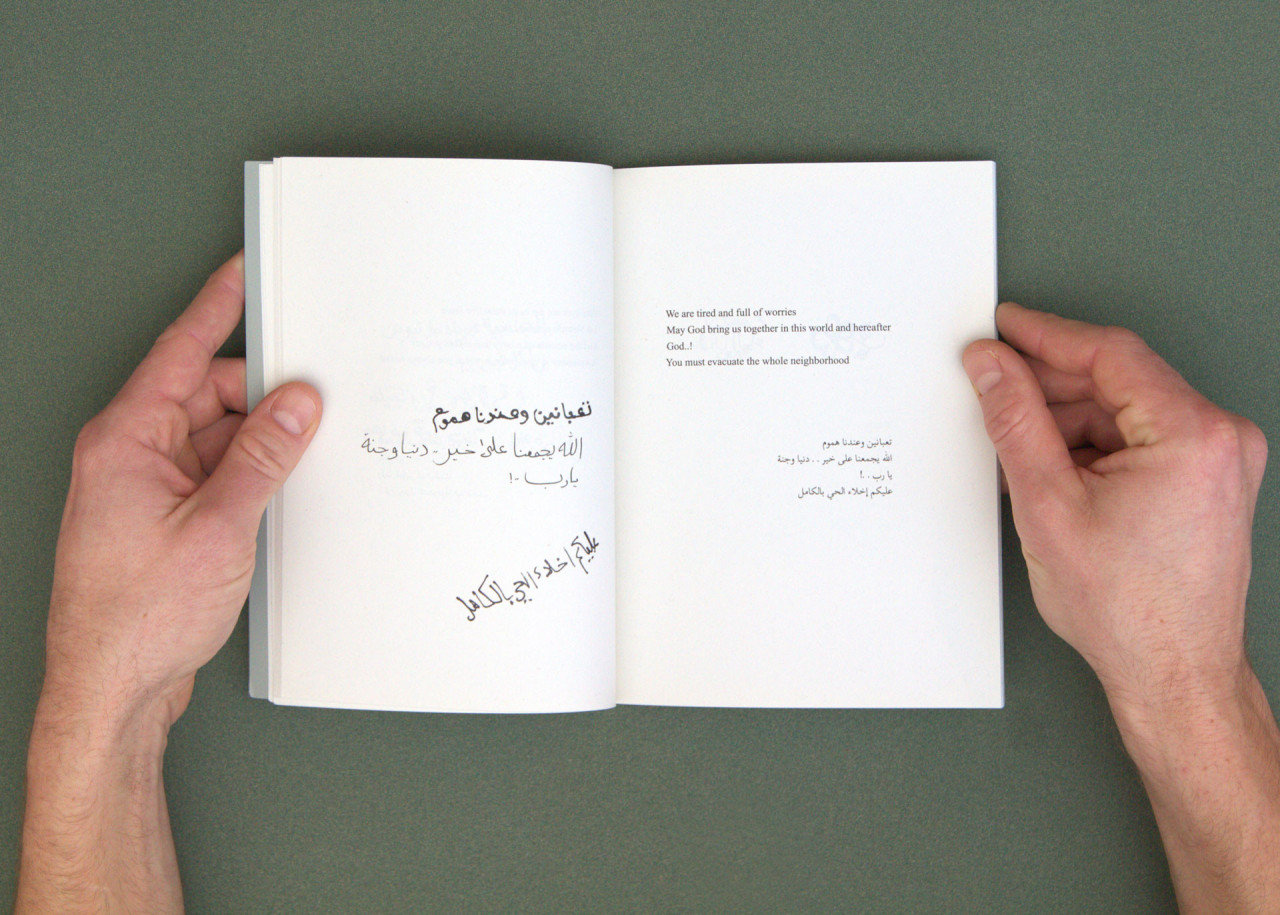 تعبانين وعندنا هموم
الله يجمعنا على خير .. دنيا وجنة
يارب ..!
عليكم اخلاء الحي بالكامل
We are tired and full of worries
May God bring us together in this world and hereafter
God..!
You must evacuate the whole neighborhood
تعبانين وعندنا هموم
الله يجمعنا على خير . . دنيا وجنة
يا رب . .!
عليكم إخلاء الحي بالكامل